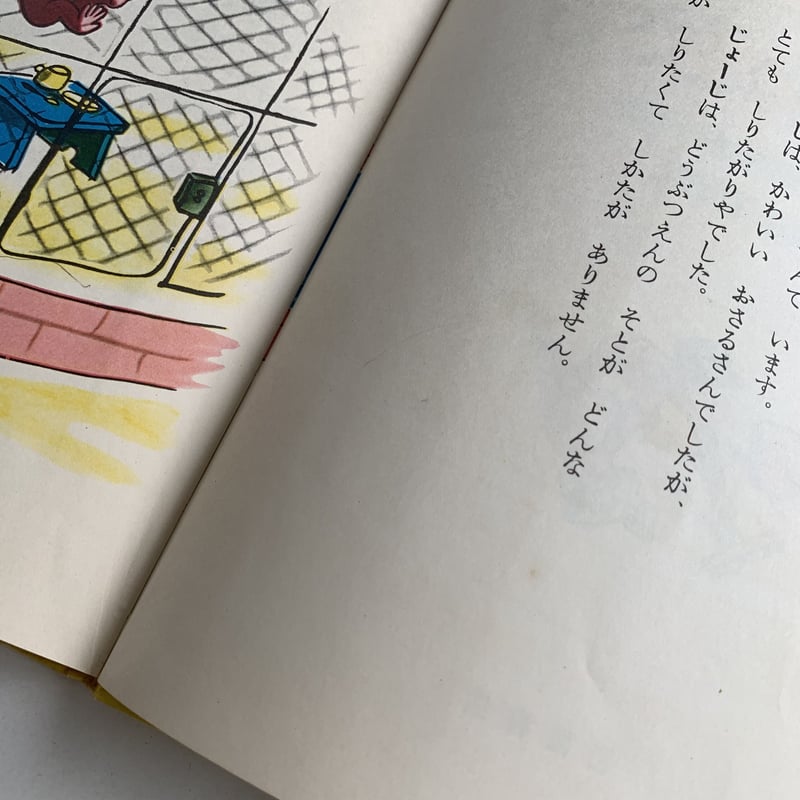 んで います。
じは、 かわいい おさるさんでしたが、
とても しりたがりやでした。
じょーじは、 どうぶつえんの そとが どんな
か しりたくて しかたが ありません。